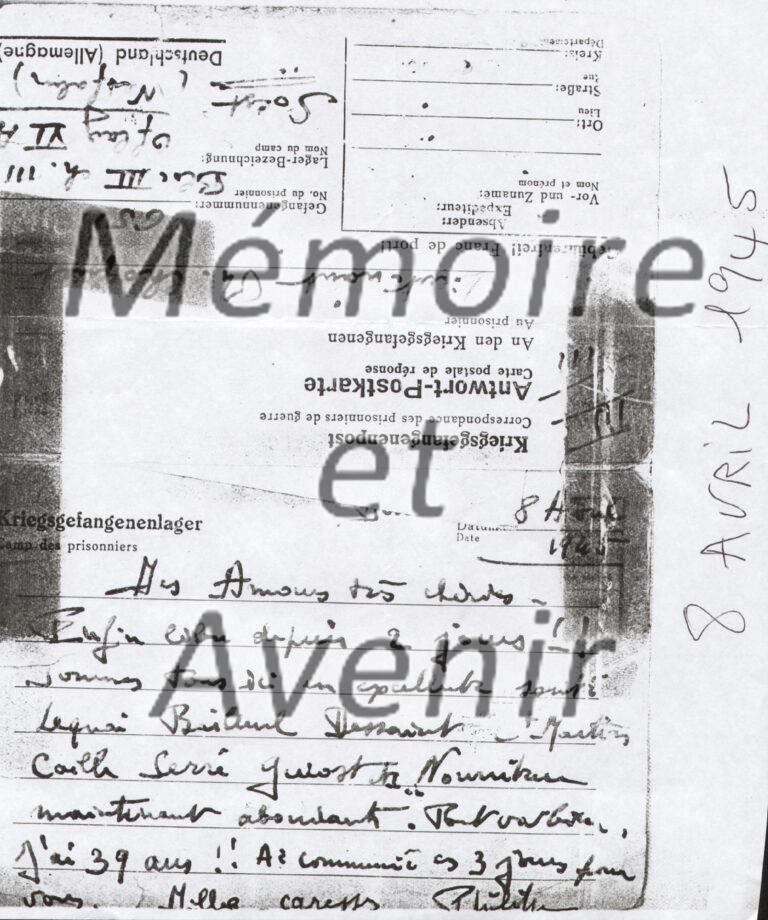 Deutschland (Allemagne)
Soest
Oflag VI A
Nom du camp
Lager-Bezeichnung:
Bloc III ch. 111
No. du prisonnier
Gefangenennummer:
Département
Kreis:
Rue
Straße:
Lieu
Ort:
Nom et prénom
Vor- und Zuname:
Expéditeur:
Absender:
Gebührenfrei! Franc de port!
Au prisonnier
An den Kriegsgefangenen
Carte postale de réponse
Antwort-Postkarte
Correspondance des prisonniers de guerre
Kriegsgefangenenpost
Mémoire
et
Avenir
8 AVRIL 1945
Kriegsgefangenenlager
Camp des prisonniers
Datum
Date
8 Avril
1945
Mes Amours très chéris -
Enfin libre depuis 2 jours !!
Sommes tous ici en excellente santé
Lequai Bailleul Dessaint St Martin
Caille Serré
maintenant abondante. Tout va bien,
J'ai 39 ans !! Ai communié ces 3 jours pour
vous. Mille caresses